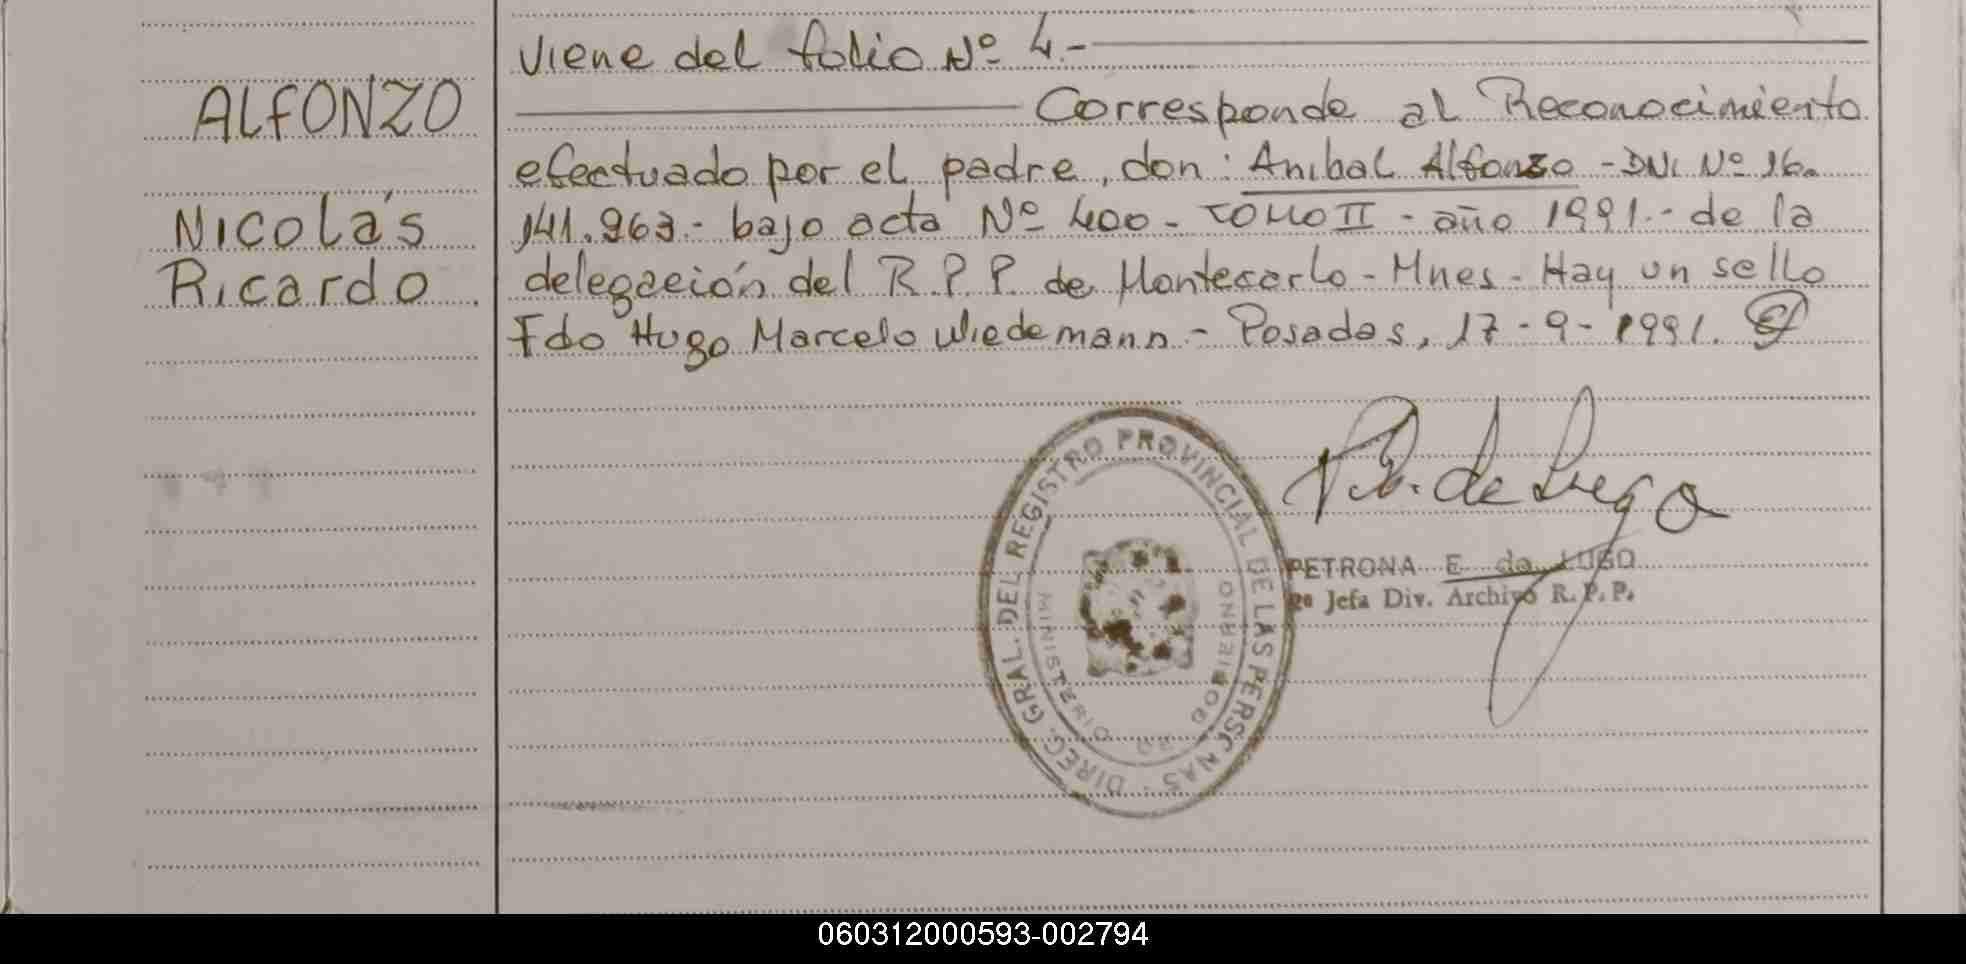 ALFONZO
Nicolás
Ricardo
Viene del folio Nº 4.-
Corresponde al Reconocimiento
efectuado por el padre, don: Anibal Alfonzo - DNI. Nº 16.
141.963.- bajo acta Nº 400 - TOMO II - año 1991.- de la
delegación del R.P.P. de Montecarlo - Mnes - Hay un sello
Fdo Hugo Marcelo Wiedemann - Posadas, 17-9-1991.
DIREC. GRAL. DEL REGISTRO PROVINCIAL DE LAS PERSONAS
MINISTERIO DE GOBIERNO
de Lugo
PETRONA E de LUGO
Jefa Div. Archivo R.P.P.
060312000593-002794